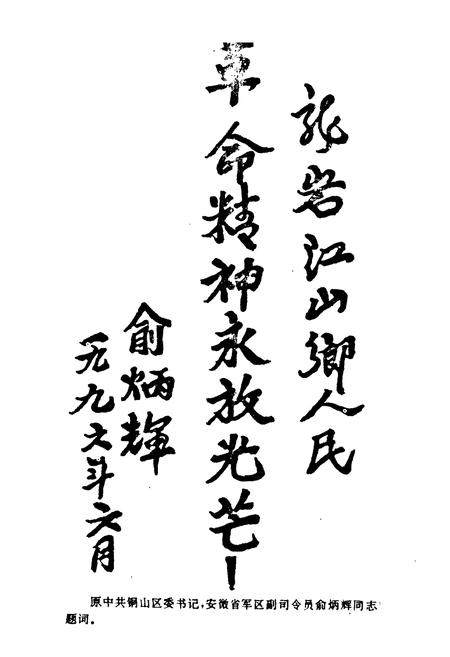 龙岩江山鄉人民
革命精神永放光芒！
俞炳輝
一九九六年六月
原中共铜山区委书记,安徽省军区副司令员俞炳辉同志
题词。